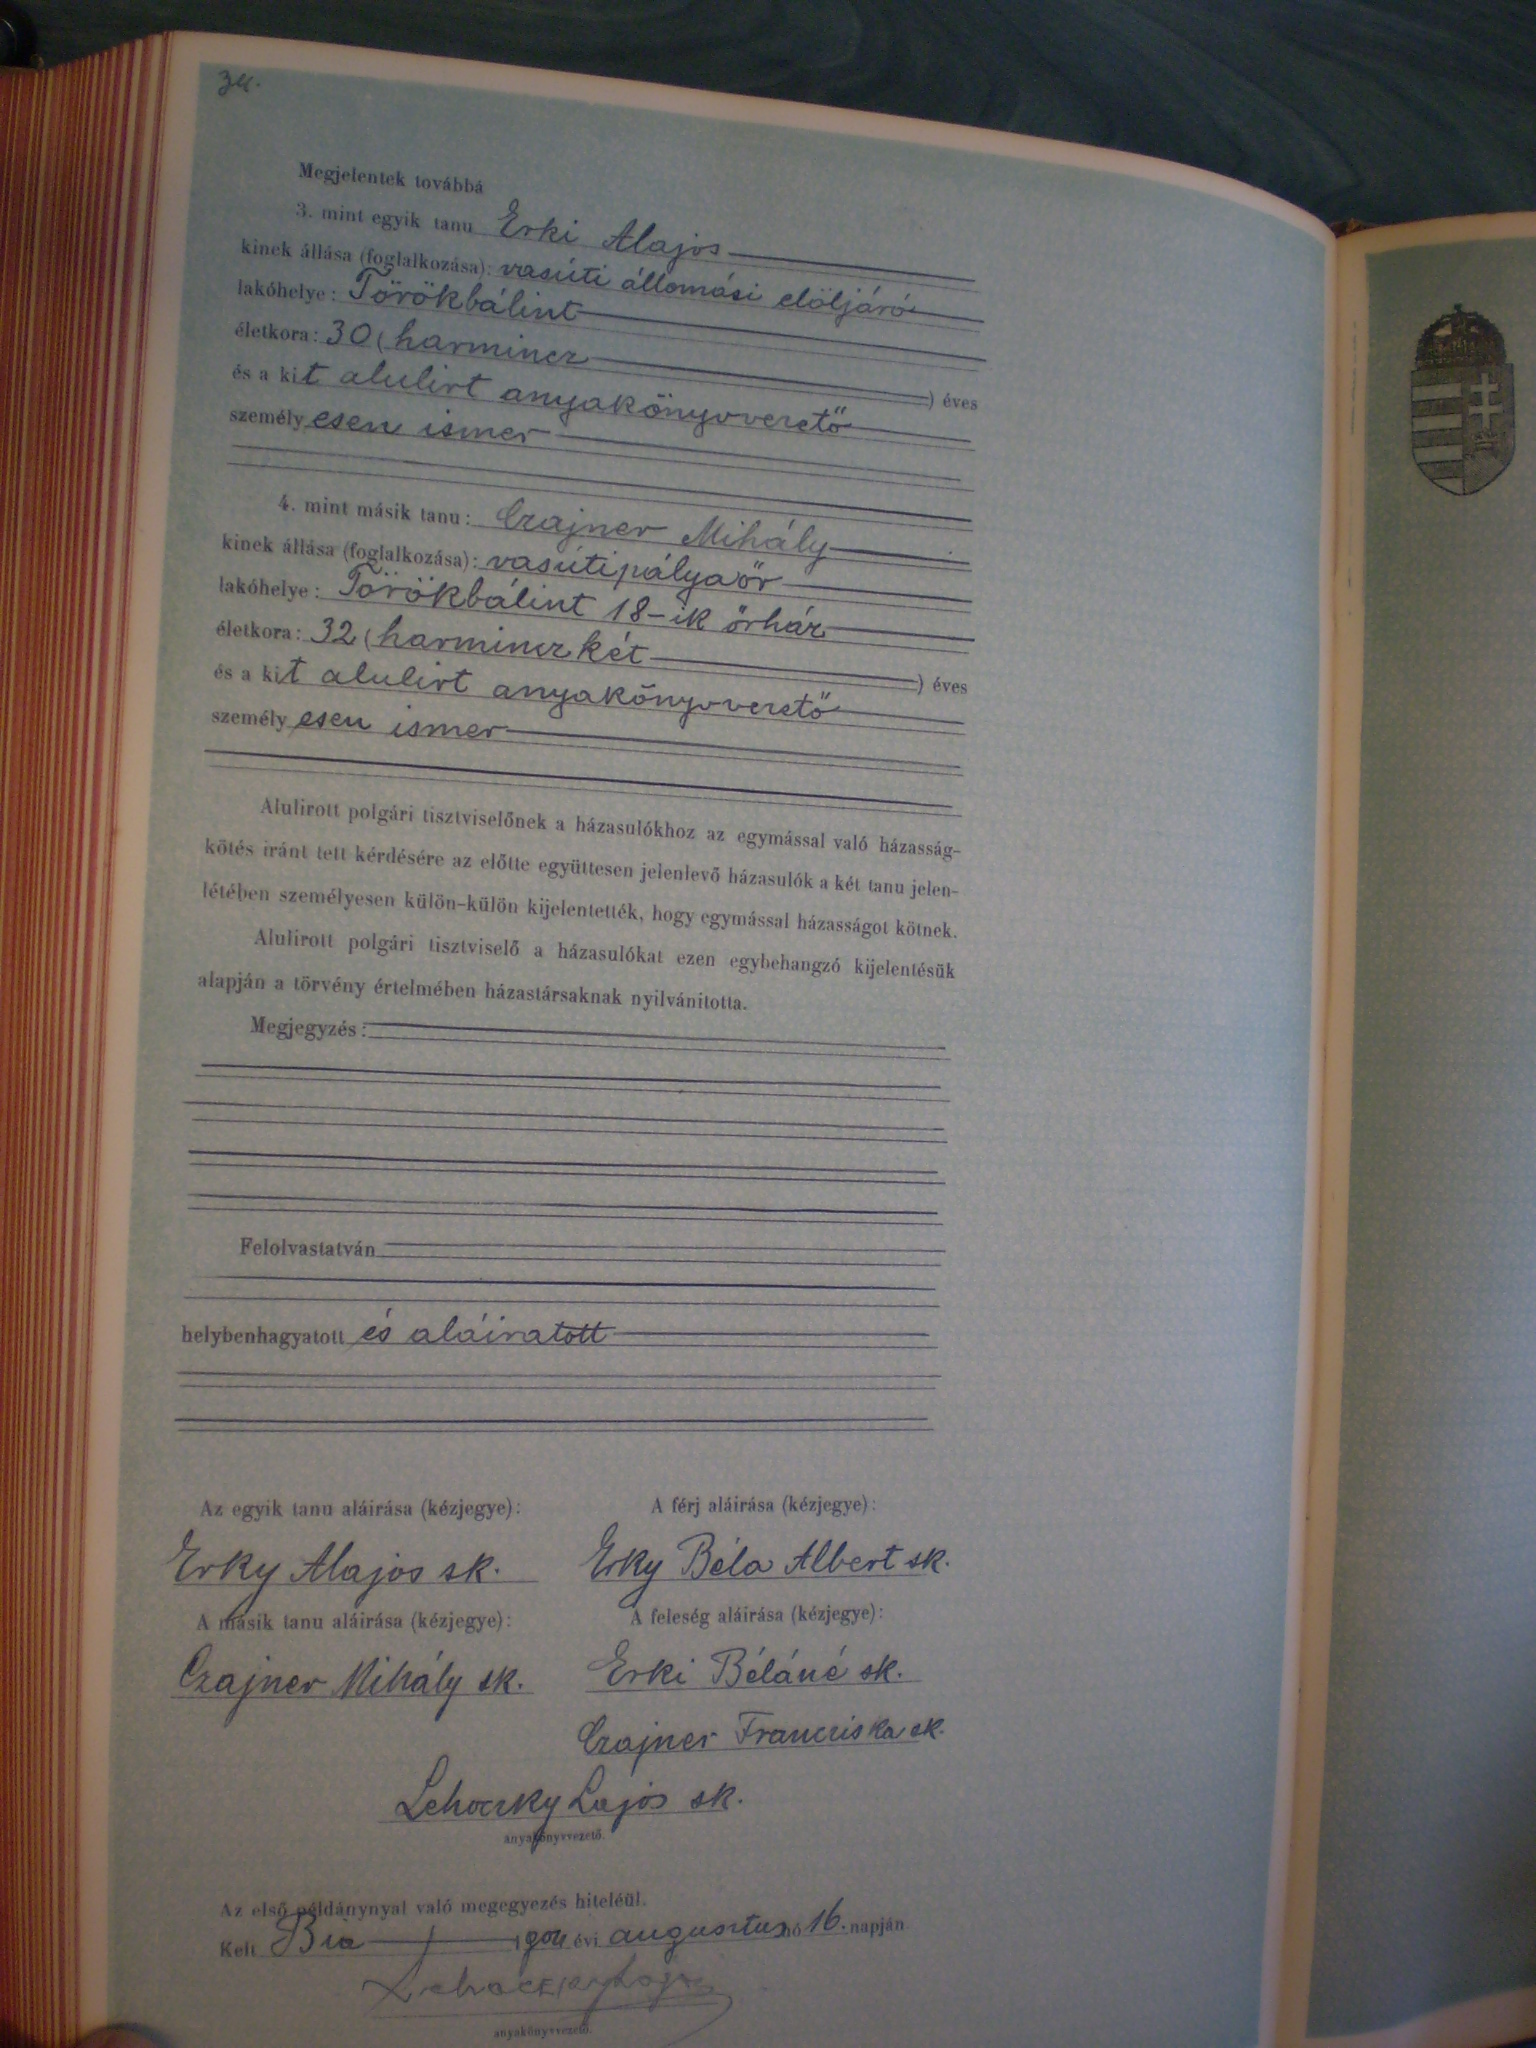 34.
Megjelentek továbbá
3. mint egyik tanu Erki Alajos
kinek állása (foglalkozása): vasúti állomási elöljáró
lakóhelye: Törökbálint
életkora: 30 (harmincz ) éves
és a kit alulirt anyakönyvvezető
személyesen ismer
4. mint másik tanu: Czajner Mihály
kinek állása (foglalkozása): vasúti pályaőr
lakóhelye: Törökbálint 18-ik őrház
életkora: 32 (harmincz két ) éves
és a kit alulirt anyakönyvvezető
személyesen ismer
Alulirott polgári tisztviselőnek a házasulókhoz az egymással való házasság-
kötés iránt tett kérdésére az előtte együttesen jelenlevő házasulók a két tanu jelen-
létében személyesen külön-külön kijelentették, hogy egymással házasságot kötnek.
Alulirott polgári tisztviselő a házasulókat ezen egybehangzó kijelentésük
alapján a törvény értelmében házastársaknak nyilvánitotta.
Megjegyzés:
Felolvastatván
helybenhagyatott és aláiratott
Az egyik tanu aláirása (kézjegye): A férj aláirása (kézjegye):
Erky Alajos sk. Erky Béla Albert sk.
A másik tanu aláirása (kézjegye): A feleség aláirása (kézjegye):
Czajner Mihály sk. Erki Béláné sk.
Czajner Francziska sk.
Lehoczky Lajos sk.
anyakönyvvezető.
Az első példánynyal való megegyezés hiteléül.
Kelt Bia 1904 évi augusztus hó 16. napján
Lehoczky Lajos
anyakönyvvezető.